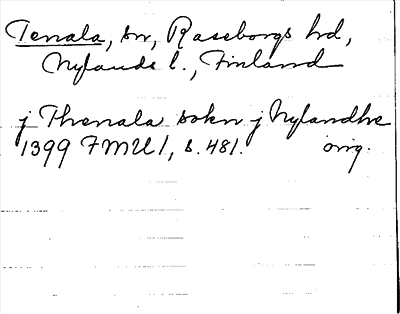 Tenala, sn, Raseborgs hd,
Nylands l., Finland
j Thenala sokn j Nylandhe
1399 FMU 1, s. 481. orig.